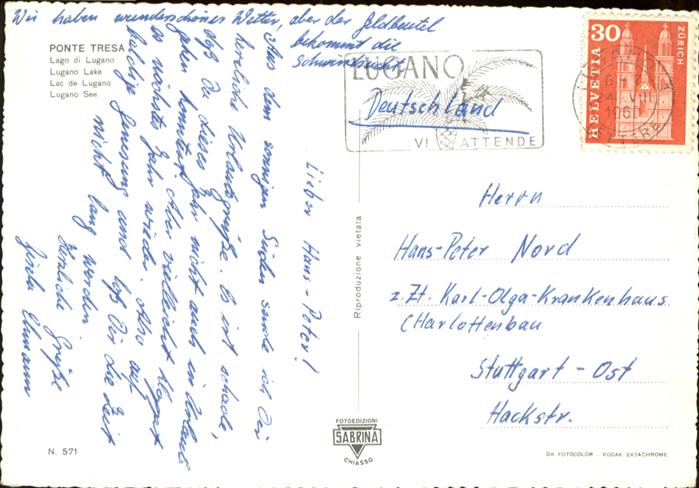 Wir haben wunderschönes Wetter, aber der Geldbeutel
bekommt die
Schwindsucht
PONTE TRESA
Lago di Lugano
Lugano Lake
Lac de Lugano
Lugano See
Lieber Hans-Peter!
Aus dem sonnigen Süden sende ich Dir
herzliche Urlaubsgrüße. Es ist schade,
daß Du dieses Jahr nicht auch in Urlaub
gehen konntest. Aber vielleicht klappt
es nächstes Jahr wieder. Also auf
baldige Genesung und laß Dir die Zeit
nicht lang werden
Herzliche Grüße
LUGANO
VI ATTENDE
Deutschland
HELVETIA
30
ZÜRICH
VIII
Herrn
Hans-Peter Nord
z. Zt. Karl-Olga-Krankenhaus
Charlottenbau
Stuttgart - Ost
Hackstr.
Riproduzione vietata
FOTOEDIZIONI
SABRINA
CHIASSO
N. 571
DA FOTOCOLOR - KODAK EKTACHROME